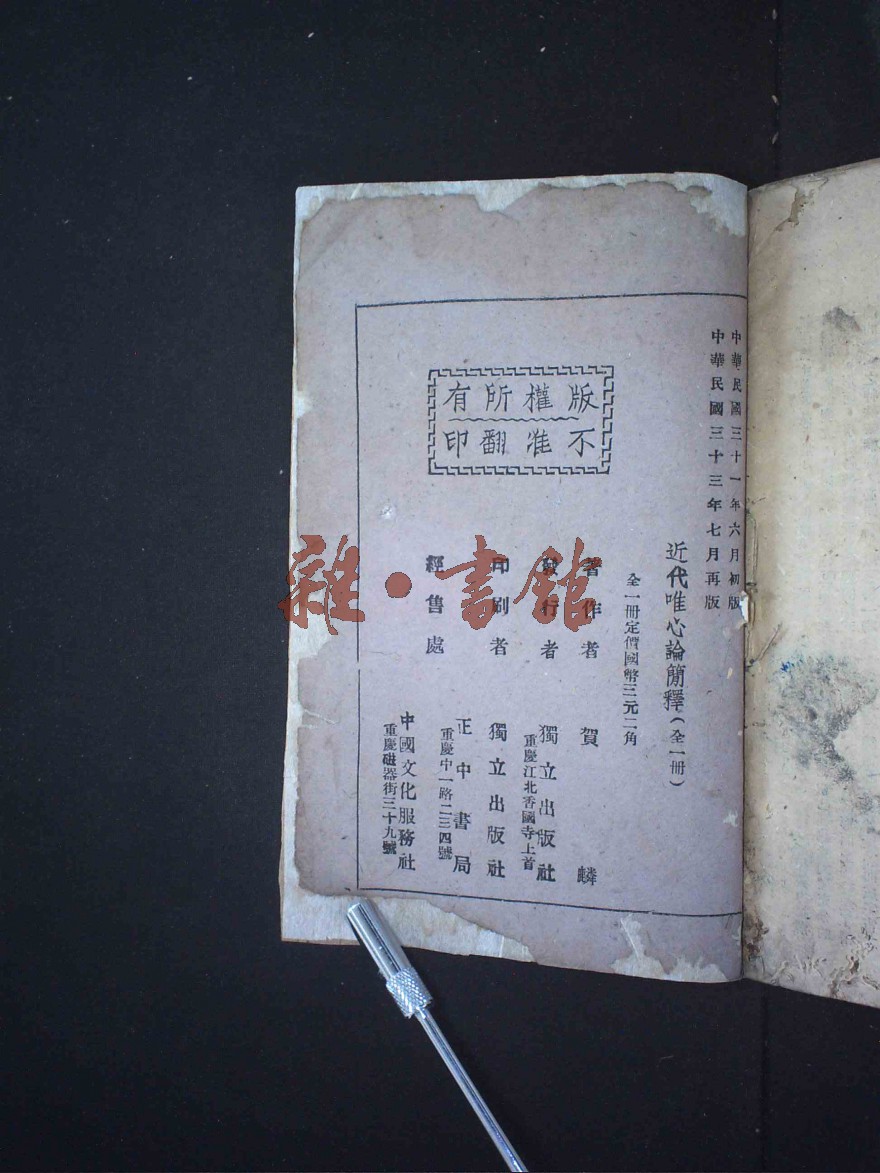 中華民國三十一年六月初版
中華民國三十三年七月再版
近代唯心論簡釋(全一册)
全一册定價國幣三元二角
版權所有
不准翻印
著作者 賀麟
發行者 獨立出版社
重慶江北香國寺上首
印刷者 獨立出版社
經售處 正中書局
重慶中一路二三四號
中國文化服務社
重慶磁器街三十九號
雜·書館